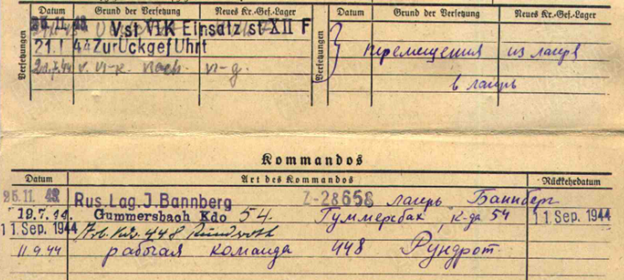 Datum Grund der Versetzung Neues Kr.-Gef.-Lager Datum Grund der Versetzung Neues Kr.-Gef.-Lager
25.11.42 Vst VIK Einsatz st XII F
21.1.44 Zurückgeführt
Versetzungen
Versetzungen
перемещения из лагря
в лагирь
Kommandos
Datum Art des Kommandos Rückkehrdatum
25.11.42 Rus. Lag. J. Bannberg Z-28658 лагирь Баннберг
19.7.44 Gummersbach Kdo 54. Гуммерсбах, к-да 54 11. Sep. 1944
11. Sep. 1944 Arb. Kdo 448 Ründroth
11.9.44 рабочая команда 448 Рундрот.